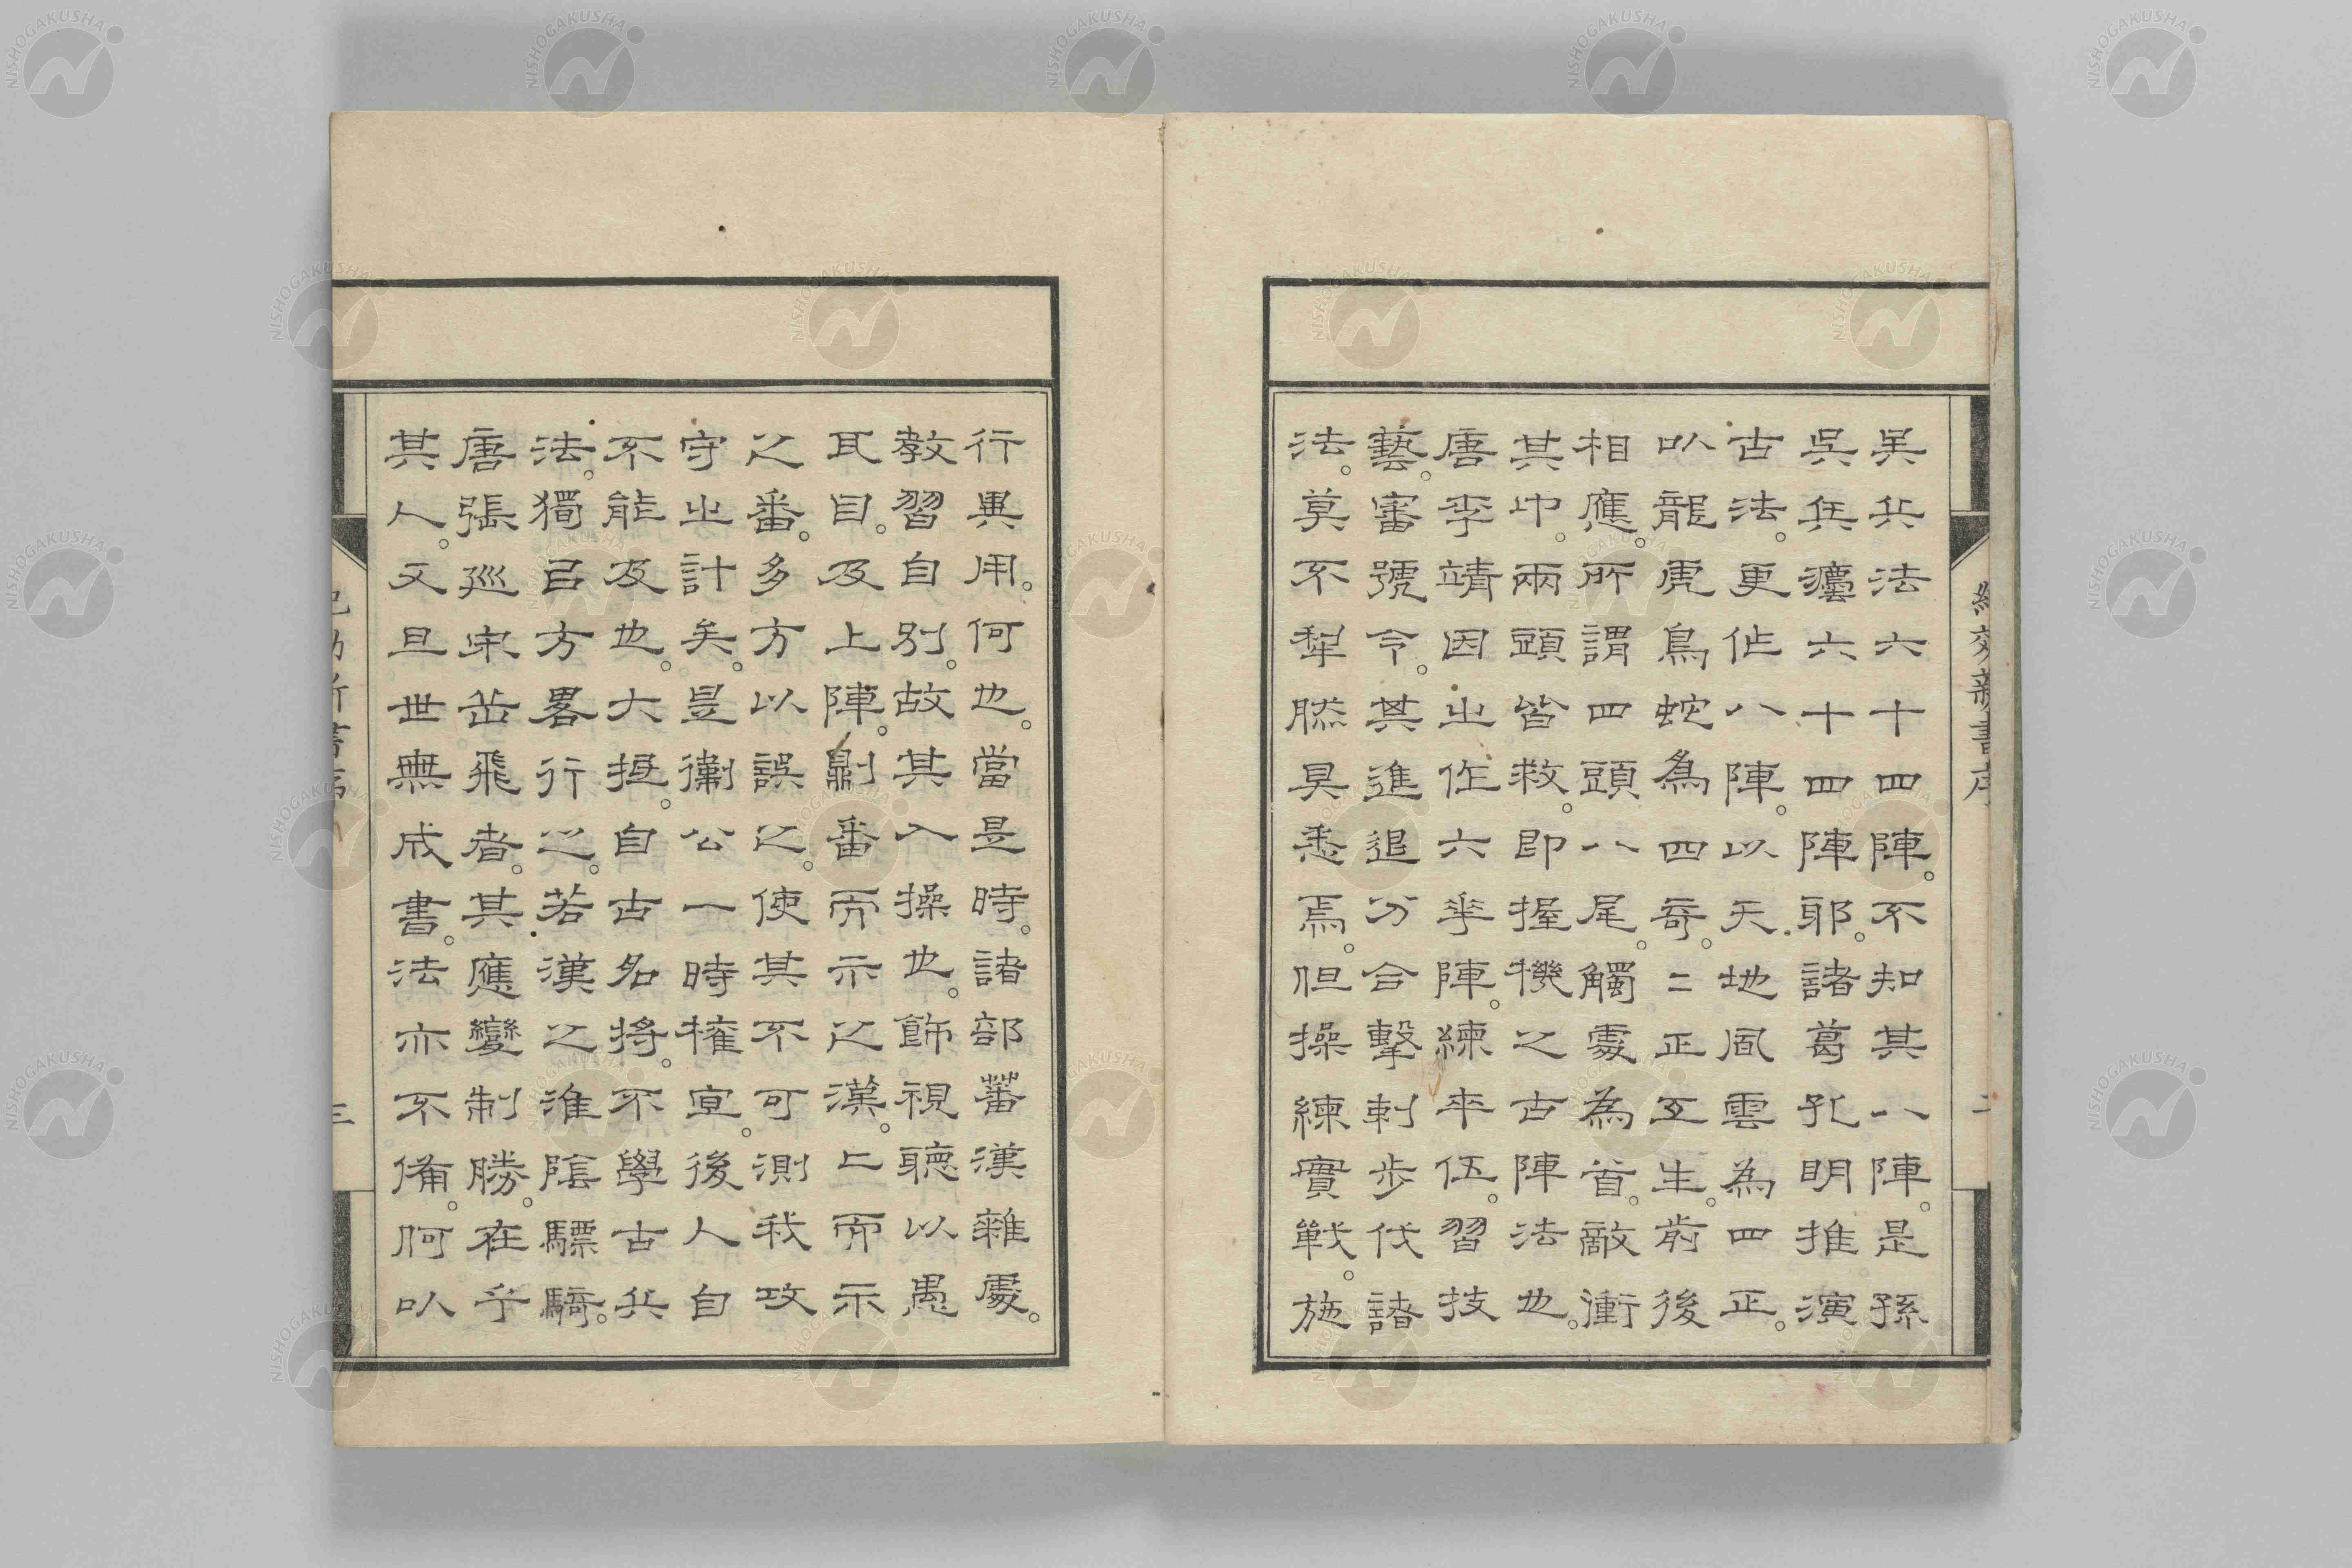 吴兵法六十四陣。不知其八陣。是孫
吳兵灋六十四陣耶。諸葛孔明推演
古法。更作八陣。以天地風雲為四正。
以龍虎鳥蛇為四奇。二正互生。前後
相應。所謂四頭八尾。觸處為首。敵衝
其中。兩頭皆救。即握機之古陣法也。
唐李靖因之作六花陣。練卒伍。習技
藝。審號令。其進退分合擊刺步伐諸
法。莫不犁然具悉焉。但操練實戰。施
行異用。何也。當是時。諸部蕃漢雜處。
教習自別。故其入操也。飾視聽以愚
耳目。及上陣。則番而示之漢。漢而示
之番。多方以誤之。使其不可測我攻
守之計矣。是衛公一時權宜。後人自
不能及也。大抵。自古名將。不學古兵
法。獨己方畧行之。若漢之淮陰驃騎。
唐張巡宋岳飛者。其應變制勝。在乎
其人。又且世無成書。法亦不備。何以
二
三